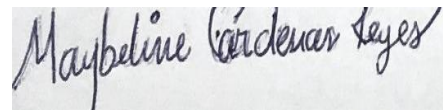 Maybeline Cárdenas Reyes